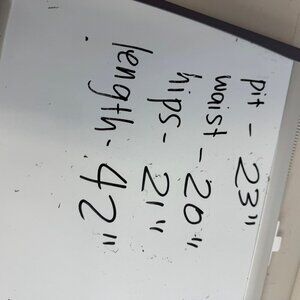 pit - 23"
waist - 20"
hips - 21"
length - 42"